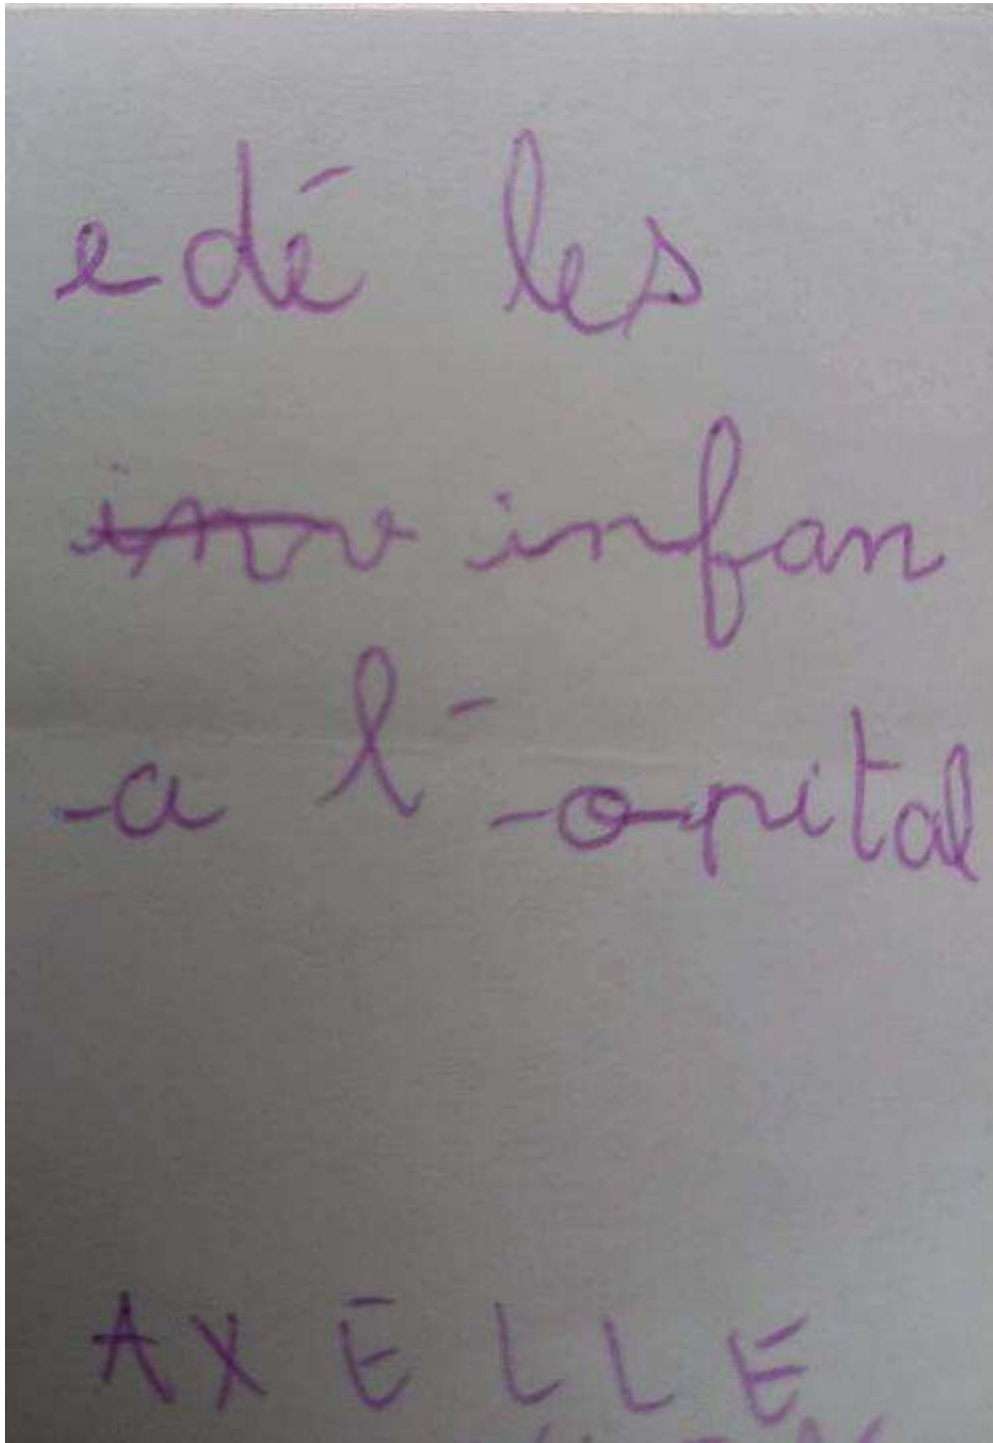 edé les
infan
a l'opital
AXELLE